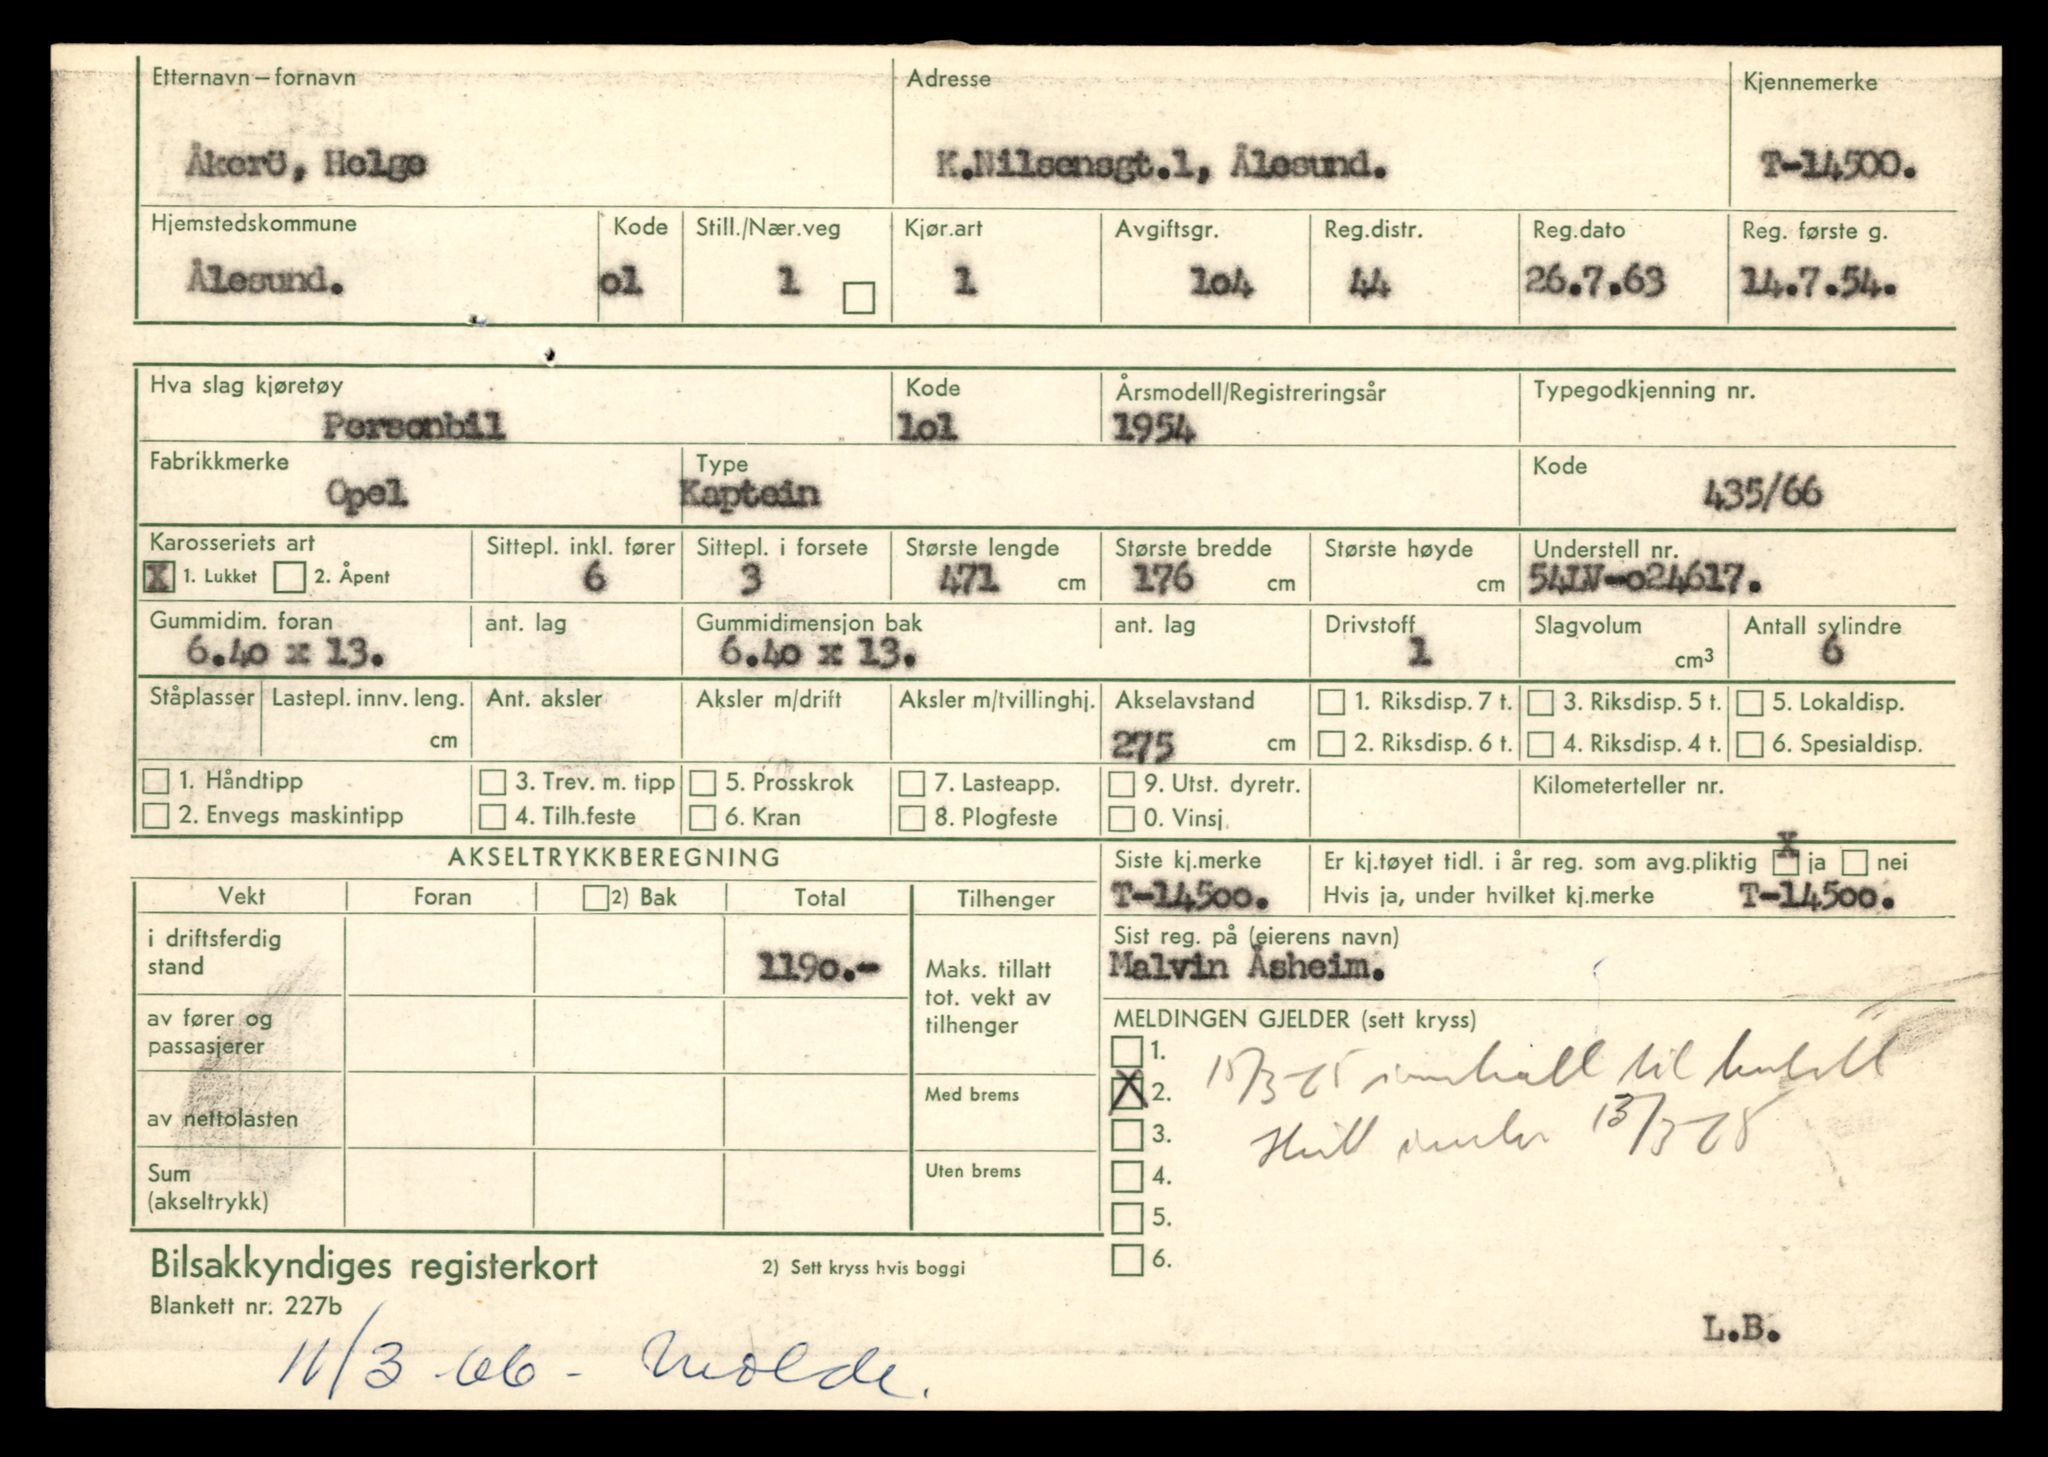 Etternavn – fornavn Adresse Kjennemerke
Åkerö, Helge K.Nilsensgt.1, Ålesund. T-14500.
Hjemstedskommune Kode Still./Nær.veg Kjør.art Avgiftsgr. Reg.distr. Reg.dato Reg. første g.
Ålesund. o1 1 1 1o4 44 26.7.63 14.7.54.
Hva slag kjøretøy Kode Årsmodell/Registreringsår Typegodkjenning nr.
Personbil 1o1 1954
Fabrikkmerke Type Kode
Opel Kaptein 435/66
Karosseriets art Sittepl. inkl. fører Sittepl. i forsete Største lengde Største bredde Største høyde Understell nr.
X 1. Lukket 2. Åpent 6 3 471 cm 176 cm cm 54LV-o24617.
Gummidim. foran ant. lag Gummidimensjon bak ant. lag Drivstoff Slagvolum Antall sylindre
6.40 x 13. 6.40 x 13. 1 cm³ 6
Ståplasser Lastepl. innv. leng. Ant. aksler Aksler m/drift Aksler m/tvillinghj. Akselavstand 1. Riksdisp. 7 t. 3. Riksdisp. 5 t. 5. Lokaldisp.
cm 275 cm 2. Riksdisp. 6 t. 4. Riksdisp. 4 t. 6. Spesialdisp.
1. Håndtipp 3. Trev. m. tipp 5. Prosskrok 7. Lasteapp. 9. Utst. dyretr. Kilometerteller nr.
2. Envegs maskintipp 4. Tilh.feste 6. Kran 8. Plogfeste 0. Vinsj.
AKSELTRYKKBEREGNING Siste kj.merke Er kj.tøyet tidl. i år reg. som avg.pliktig X ja nei
Vekt Foran 2) Bak Total Tilhenger T-145oo. Hvis ja, under hvilket kj.merke T-145oo.
i driftsferdig stand 119o.- Sist reg. på (eierens navn)
Malvin Åsheim.
Maks. tillatt tot. vekt av tilhenger
av fører og passasjerer MELDINGEN GJELDER (sett kryss)
1.
15/3 til
av nettolasten Med brems X 2.
3. 13/3
Sum (akseltrykk) Uten brems 4.
5.
Bilsakkyndiges registerkort 2) Sett kryss hvis boggi 6.
Blankett nr. 227b
L.B.
11/3-66 - Molde.